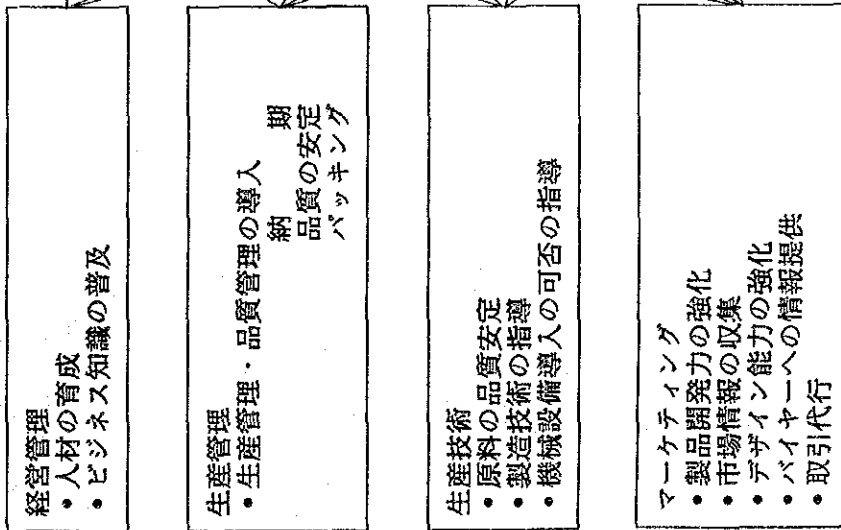 経営管理
• 人材の育成
• ビジネス知識の普及
生産管理
• 生産管理・品質管理の導入
納　　期
品質の安定
パッキング
生産技術
• 原料の品質安定
• 製造技術の指導
• 機械設備導入の可否の指導
マーケティング
• 製品開発力の強化
• 市場情報の収集
• デザイン能力の強化
• バイヤーへの情報提供
• 取引代行